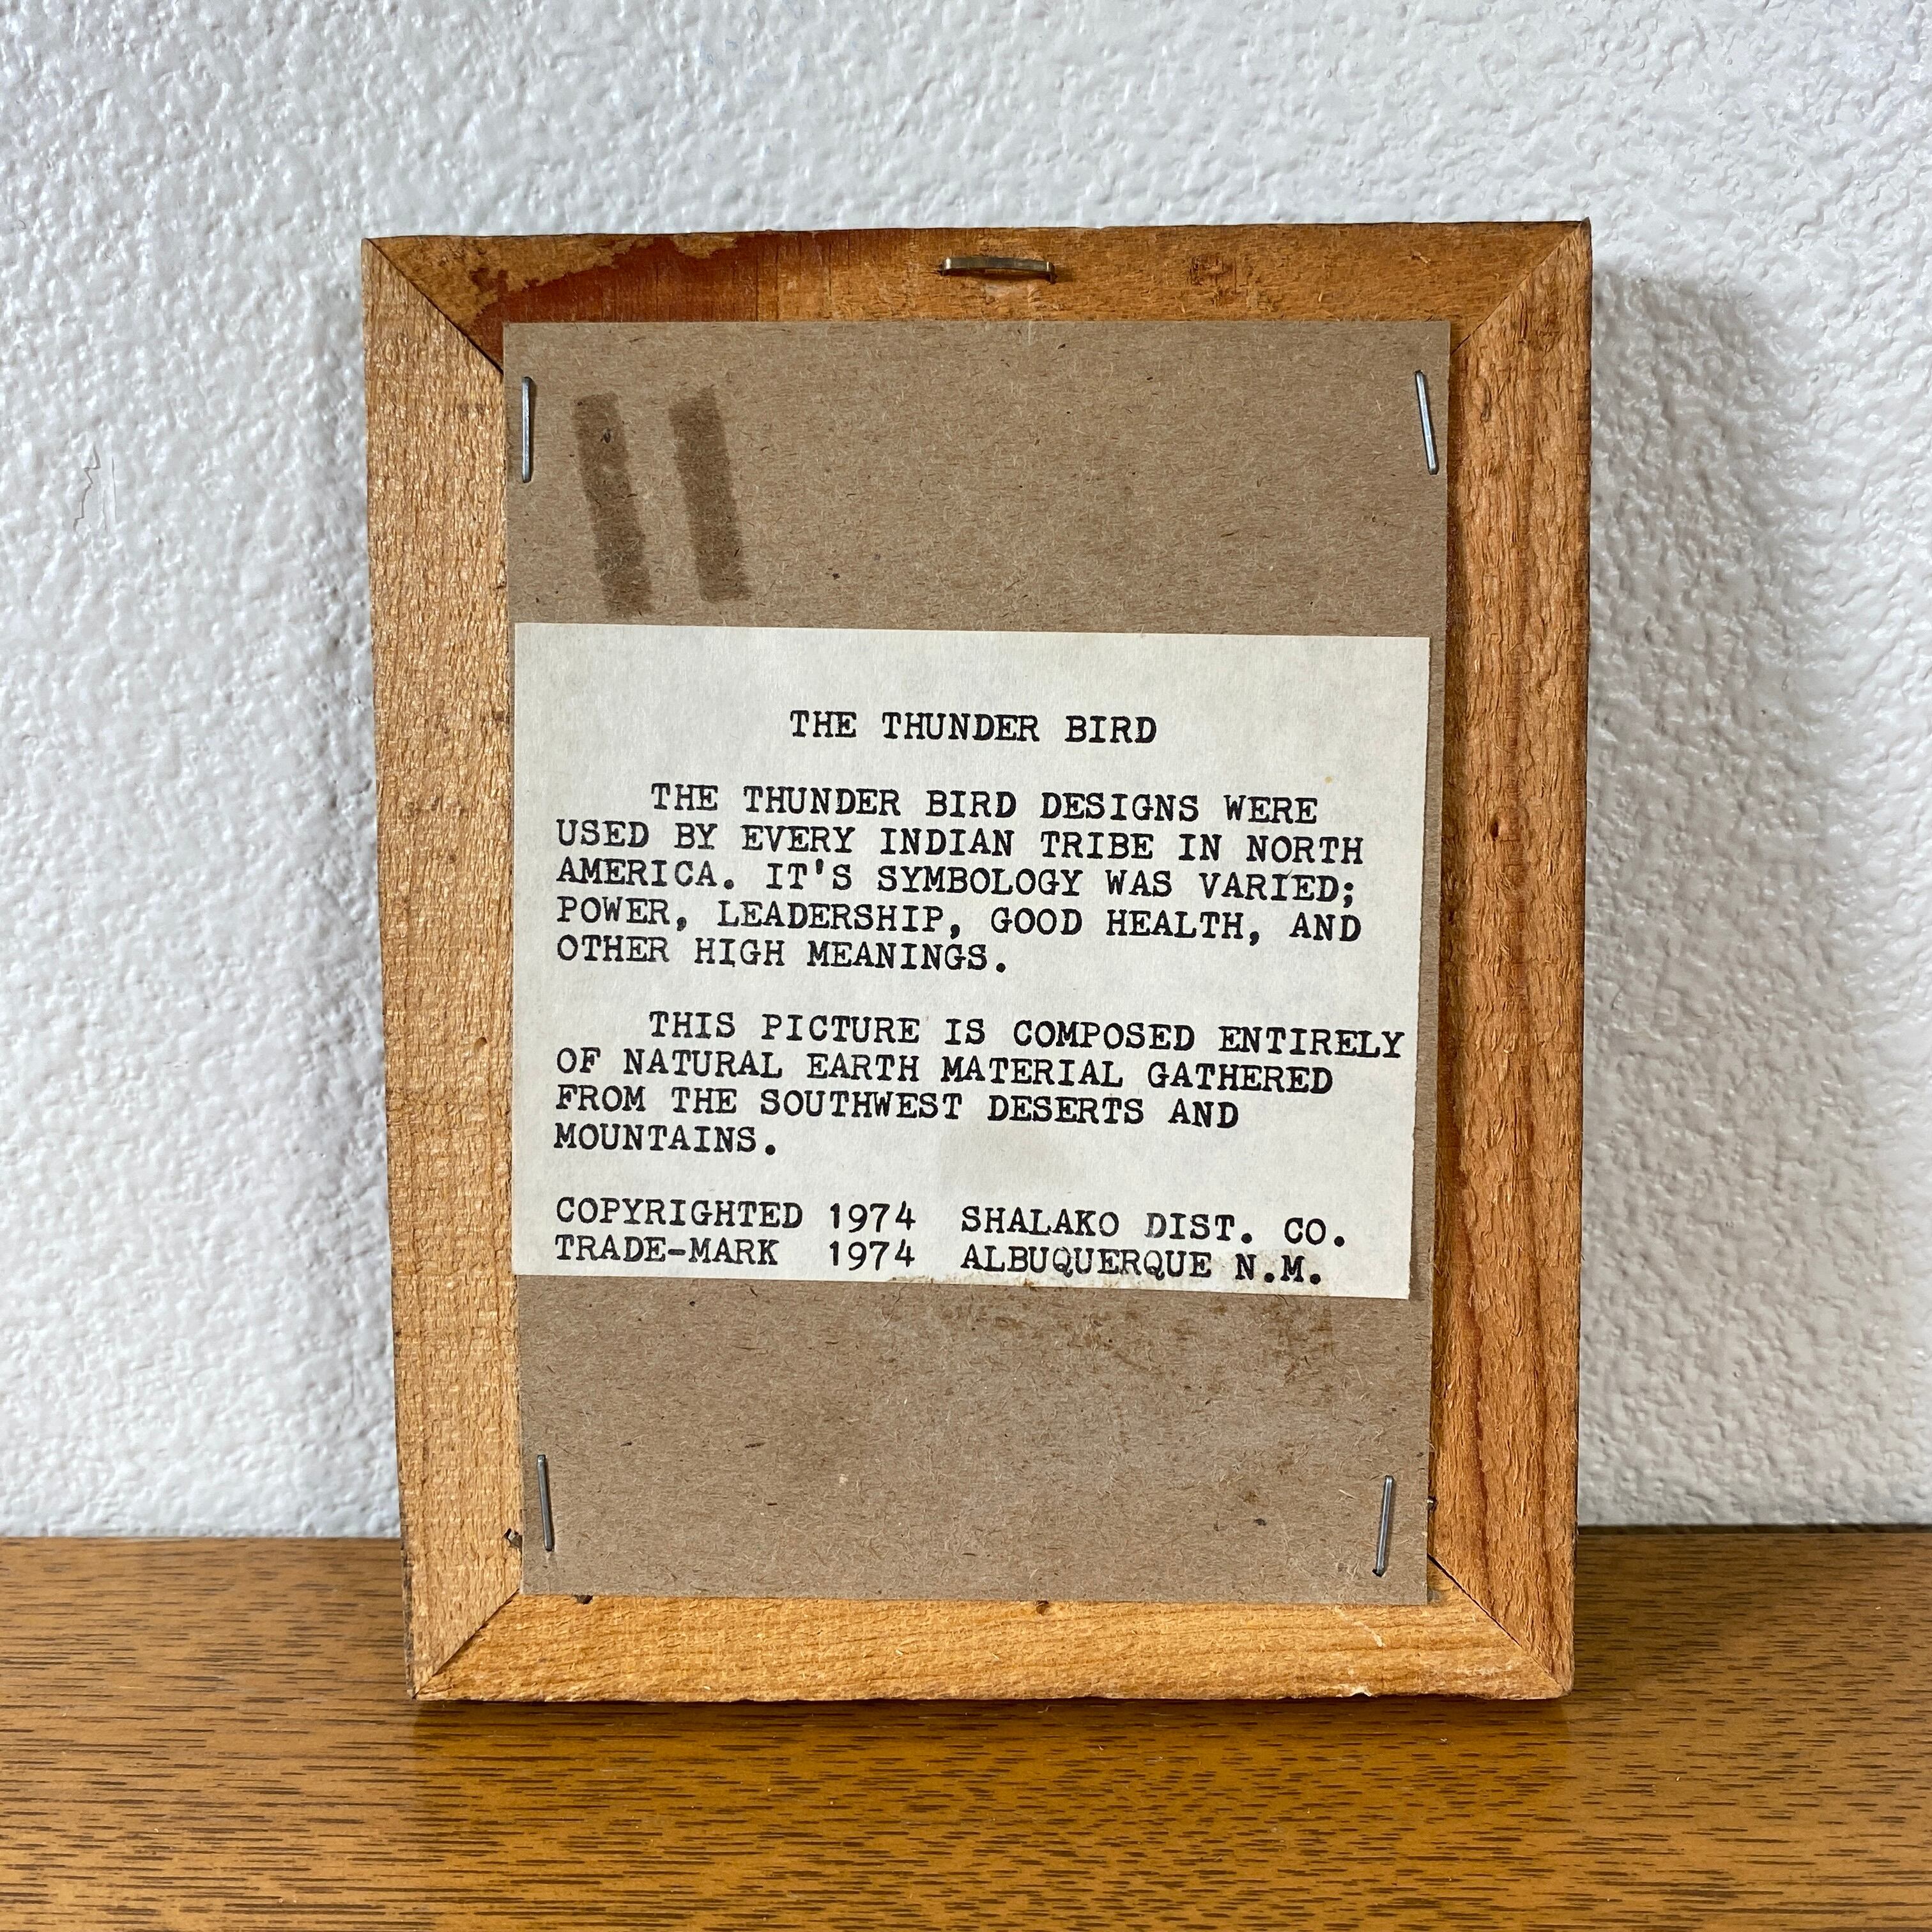 THE THUNDER BIRD
THE THUNDER BIRD DESIGNS WERE
USED BY EVERY INDIAN TRIBE IN NORTH
AMERICA. IT'S SYMBOLOGY WAS VARIED;
POWER, LEADERSHIP, GOOD HEALTH, AND
OTHER HIGH MEANINGS.
THIS PICTURE IS COMPOSED ENTIRELY
OF NATURAL EARTH MATERIAL GATHERED
FROM THE SOUTHWEST DESERTS AND
MOUNTAINS.
COPYRIGHTED 1974 SHALAKO DIST. CO.
TRADE-MARK 1974 ALBUQUERQUE N.M.